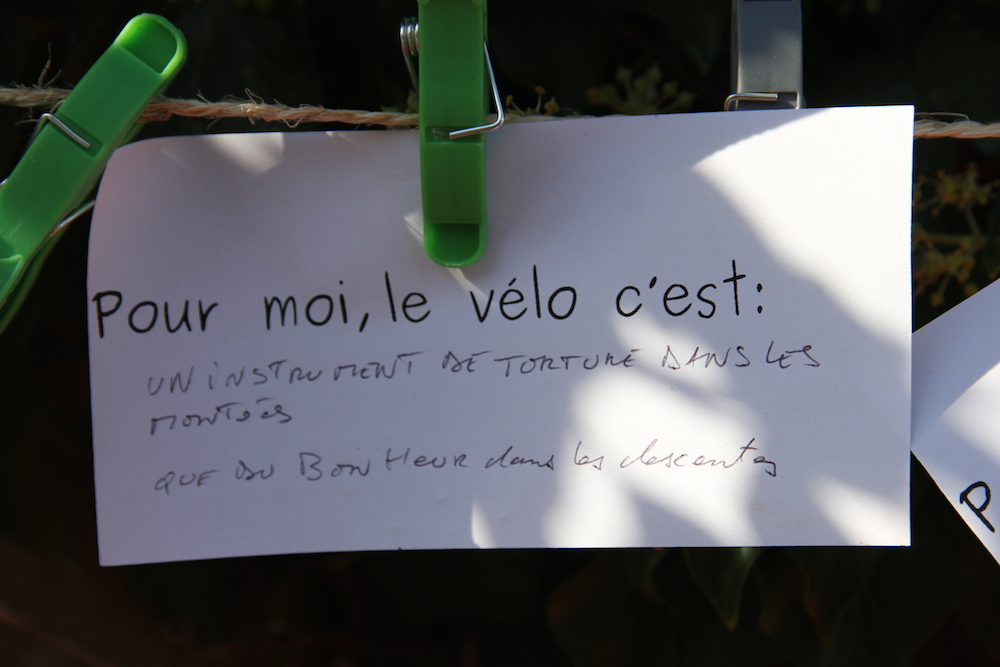 Pour moi, le vélo c'est:
UN INSTRUMENT DE TORTURE DANS LES
MONTÉES
QUE DU BONHEUR dans les descentes
P